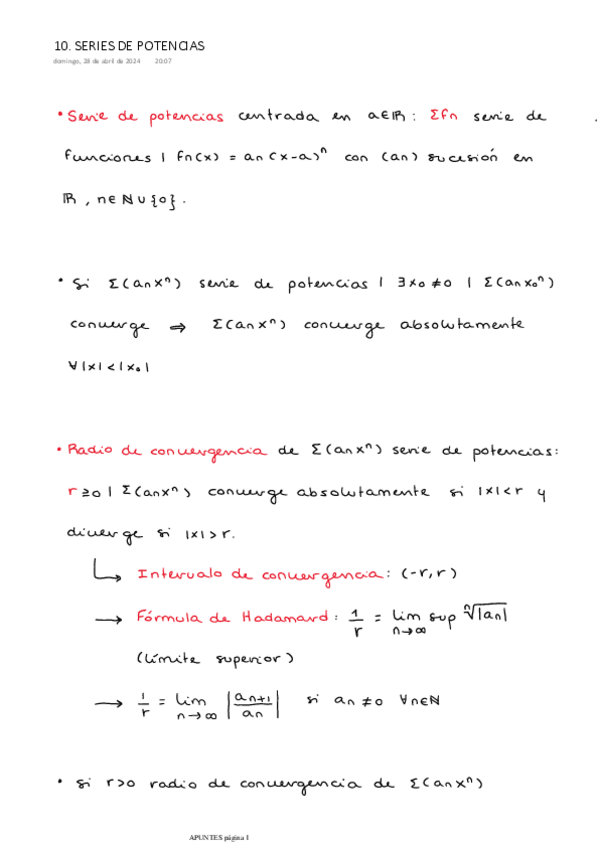 10. SERIES DE POTENCIAS
domingo, 28 de abril de 2024 20:07
• Serie de potencias centrada en a∈ℝ: Σfn serie de
funciones | fn(x) = an(x-a)ⁿ con (an) sucesión en
ℝ, n∈ℕ∪{0}.
• Si Σ(anxⁿ) serie de potencias | ∃x₀≠0 | Σ(anx₀ⁿ)
converge ⇒ Σ(anxⁿ) converge absolutamente
∀|x|<|x₀|
• Radio de convergencia de Σ(anxⁿ) serie de potencias:
r≥0 | Σ(anxⁿ) converge absolutamente si |x|<r y
diverge si |x|>r.
↳ Intervalo de convergencia: (-r,r)
→ Fórmula de Hadamard: 1/r = lim sup n→∞ ⁿ√|an|
(límite superior)
→ 1/r = lim n→∞ |an+1/an| si an≠0 ∀n∈ℕ
• Si r>0 radio de convergencia de Σ(anxⁿ)
APUNTES página 1